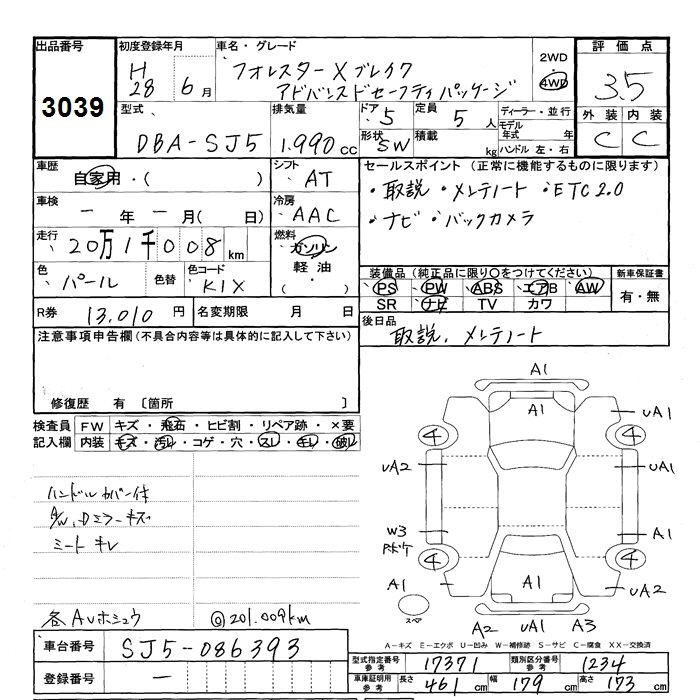 出品番号 初度登録年月 車名・グレード 評価点
3039 H28 6月 フォレスターXブレイク 2WD 3.5
アドバンスドセーフティパッケージ 4WD
型式 排気量 ドア 5 定員 5人 ディーラー・並行 外装 内装
DBA-SJ5 1.990cc 形状 SW 積載 kg モデル年式 年 C C
ハンドル 左・右
車歴 自家用・( ) シフト AT
セールスポイント (正常に機能するものに限ります)
・取説・メンテノート・ETC2.0
・ナビ・バックカメラ
車検 ー年ー月( 日) 冷房 AAC
走行 20万1千008km 燃料 ガソリン
軽油
( ・ )
色 パール 色替 色コード K1X
装備品 (純正品に限り○をつけてください) 新車保証書
PS PW ABS エアB AW 有・無
SR ナビ TV カワ
R券 13.010円 名変期限 月 日
後日品 取説、メンテノート
注意事項申告欄(不具合内容等は具体的に記入して下さい)
修復歴 有 〔箇所 〕
検査員 FW キズ・飛石・ヒビ割・リペア跡・×要
記入欄 内装 キズ・汚れ・コゲ・穴・スレ・キレ・破れ
ハンドルカバー付
A/W、Dミラーキズ
シートキレ
各AUホシュウ ◎201.009km
A1
A1
uA1
4 4
uA2 uA1
W3 A1
4 4
A1 A1 uA2
スペア
A2 uA1 A3
A-キズ E-エクボ U-凹み W-補修跡 S-サビ C-腐食 XX-交換済
車台番号 SJ5-086393
登録番号 ー
型式指定番号 参考 17371 類別区分番号 参考 1234
車庫証明用 参考 長さ 461cm 幅 179cm 高さ 173cm